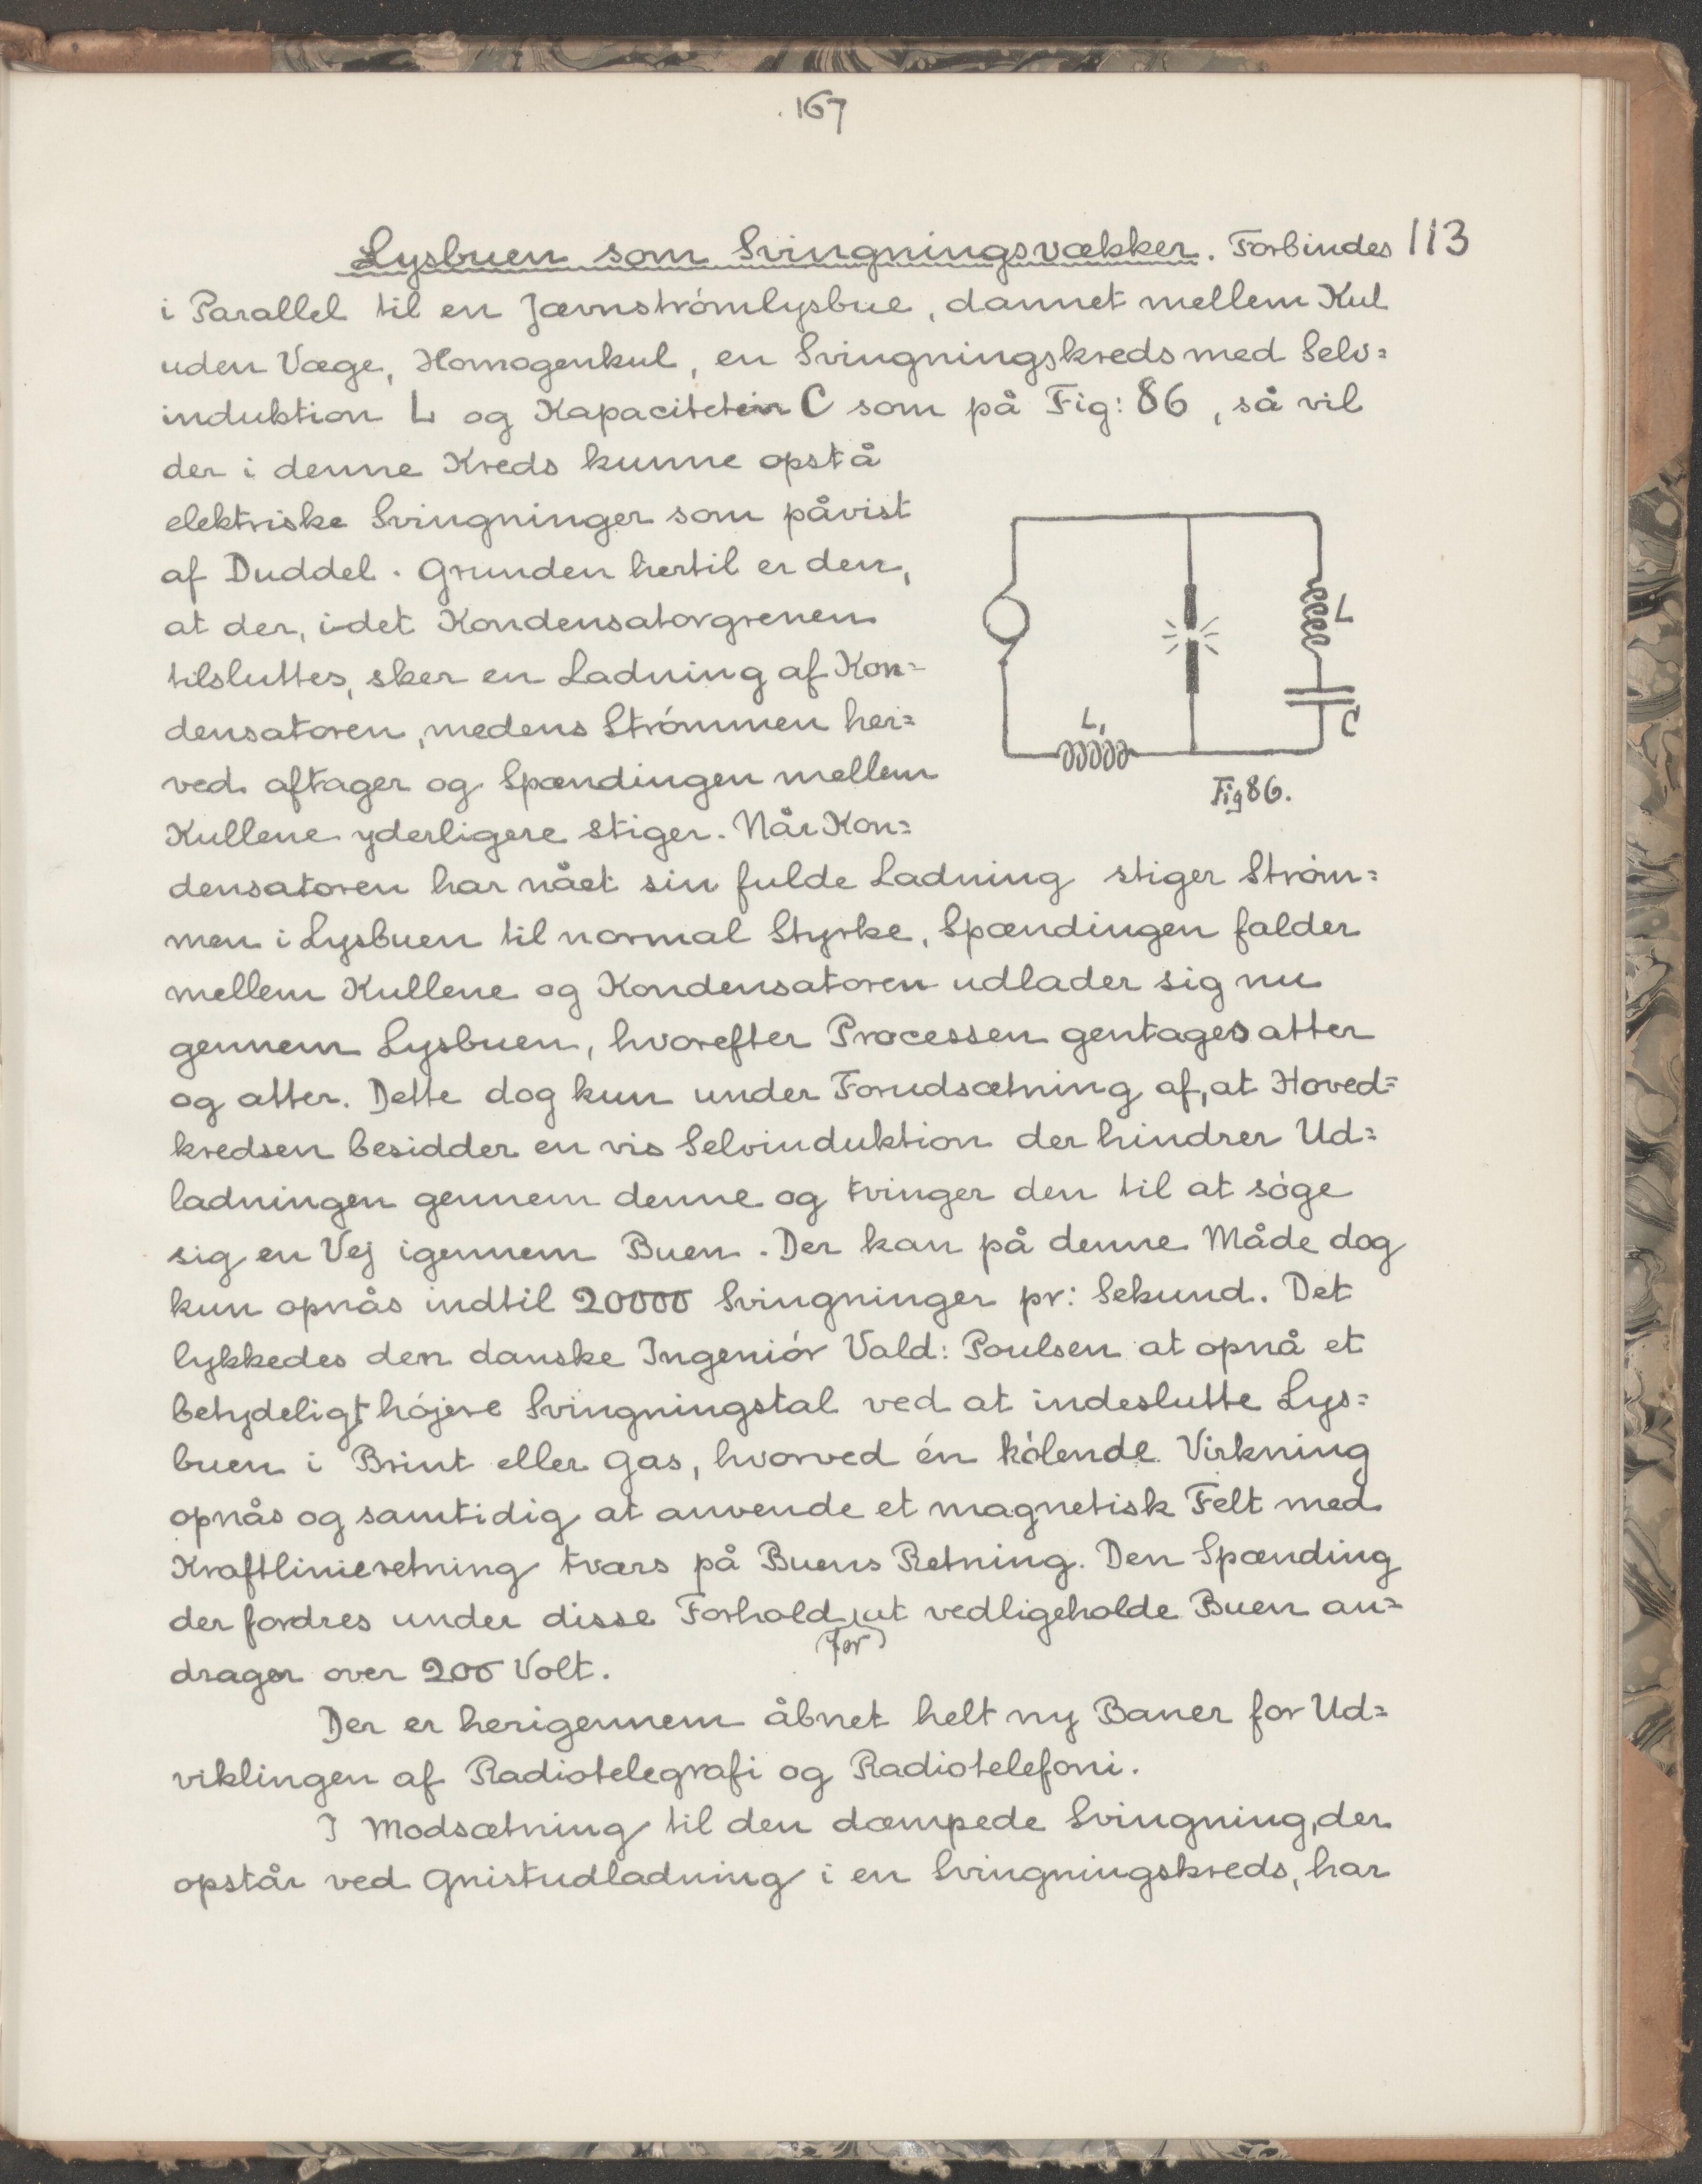 167
Lysbuen som Svingningsvækker. Forbindes 113
i Parallel til en Jævnströmlysbue, dannet mellem Kul
uden Væge, Homogenkul, en Svingningskreds med Selv=
induktion L og Kapacitet C som på Fig: 86, så vil
der i denne Kreds kunne opstå
elektriske Svingninger som påvist
af Duddel. Grunden hertil er den,
at der, idet Kondensatorgrenen
tilsluttes, sker en Ladning af Kon=
densatoren, medens Strómmen her=
ved aftager og Spændingen mellem
Kullene yderligere stiger. Når Kon=
L
L,
C
Fig 86.
densatoren har nået sin fulde Ladning stiger Ström=
men i Lysbuen til normal Styrke, Spændingen falder
mellem Kullene og Kondensatoren udlader sig nu
gennem Lysbuen, hvorefter Processen gentages atter
og atter. Dette dog kun under Forudsætning af, at Hoved=
kredsen besidder en vis Selvinduktion der hindrer Ud=
ladningen gennem denne og tvinger den til at sóge
sig en Vej igennem Buen. Der kan på denne Måde dog
kun opnås indtil 20000 Svingninger pr: Sekund. Det
lykkedes den danske Ingeniór Vald: Poulsen at opnå et
betydeligt hójere Svingningstal ved at indeslutte Lys=
buen i Brint eller Gas, hvorved én kólende Virkning
opnås og samtidig at anvende et magnetisk Felt med
Kraftlinieretning tværs på Buens Retning. Den Spænding
der fordres under disse Forhold at vedligeholde Buen an=
(for)
drager over 200 Volt.
Der er herigennem åbnet helt ny Baner for Ud=
viklingen af Radiotelegrafi og Radiotelefoni.
I Modsætning til den dæmpede Svingning, der
opstår ved Gnistudladning i en Svingningskreds, har